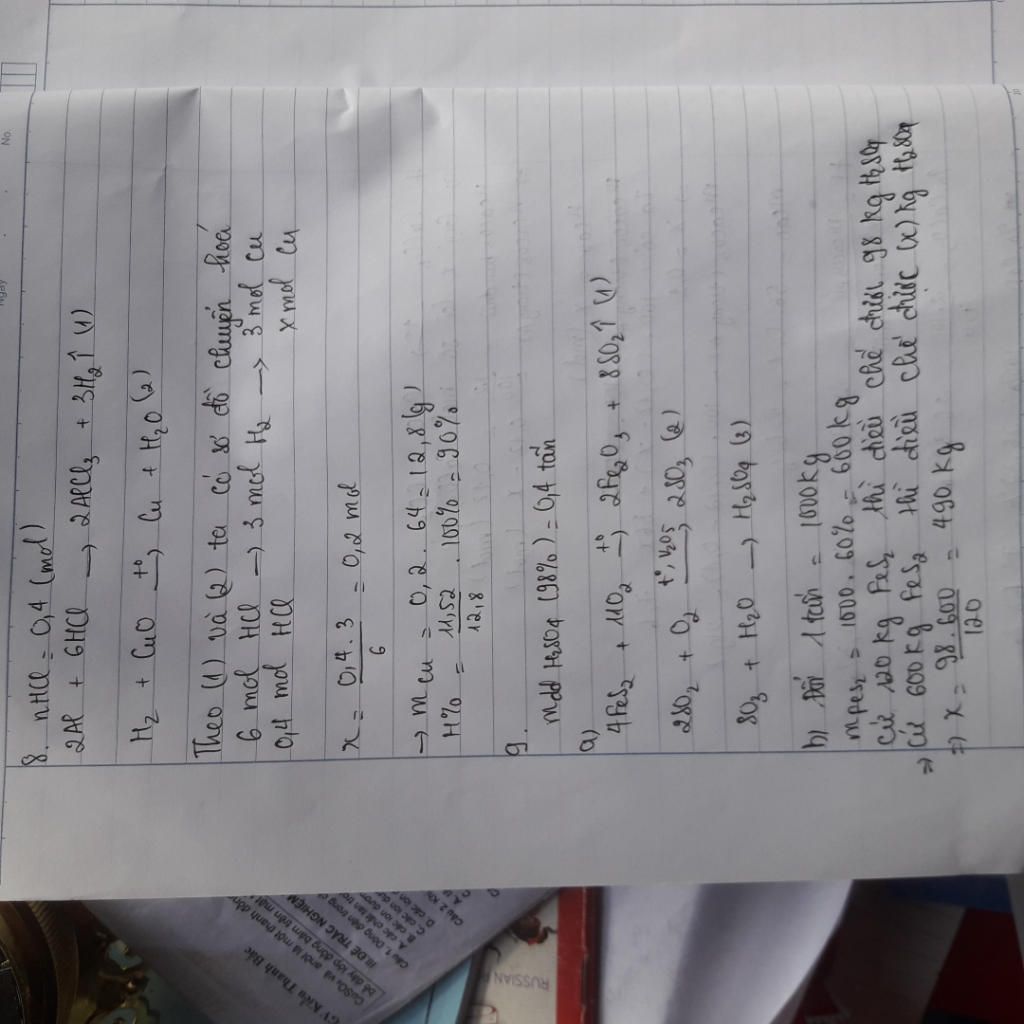 No.
Ngày
8. nHCl = 0,4 (mol)
2Al + 6HCl → 2AlCl₃ + 3H₂↑ (1)
H₂ + CuO t° → Cu + H₂O (2)
Theo (1) và (2) ta có sơ đồ chuyển hoá
6 mol HCl → 3 mol H₂ → 3 mol Cu
0,4 mol HCl x mol Cu
x = 0,4 . 3 / 6 = 0,2 mol
→ m Cu = 0,2 . 64 = 12,8 (g)
H% = 11,52 / 12,8 . 100% = 90%
9.
mdd H₂SO₄ (98%) = 0,4 tấn
a)
4FeS₂ + 11O₂ t° → 2Fe₂O₃ + 8SO₂↑ (1)
2SO₂ + O₂ t°, V₂O₅ → 2SO₃ (2)
SO₃ + H₂O → H₂SO₄ (3)
b) Đổi 1 tấn = 1000 kg
mFeS₂ = 1000. 60% = 600 kg
Cứ 120 kg FeS₂ thì điều chế được 98 kg H₂SO₄
⇒ Cứ 600 kg FeS₂ thì điều chế được (x) kg H₂SO₄
⇒ x = 98.600 / 120 = 490 kg
GV Kiều Thanh Bắc
III ĐỀ TRẮC NGHIỆM
RUSSIAN